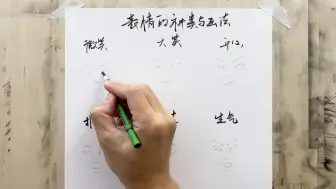 表情的种类与画法
微笑 大笑 开心
生气